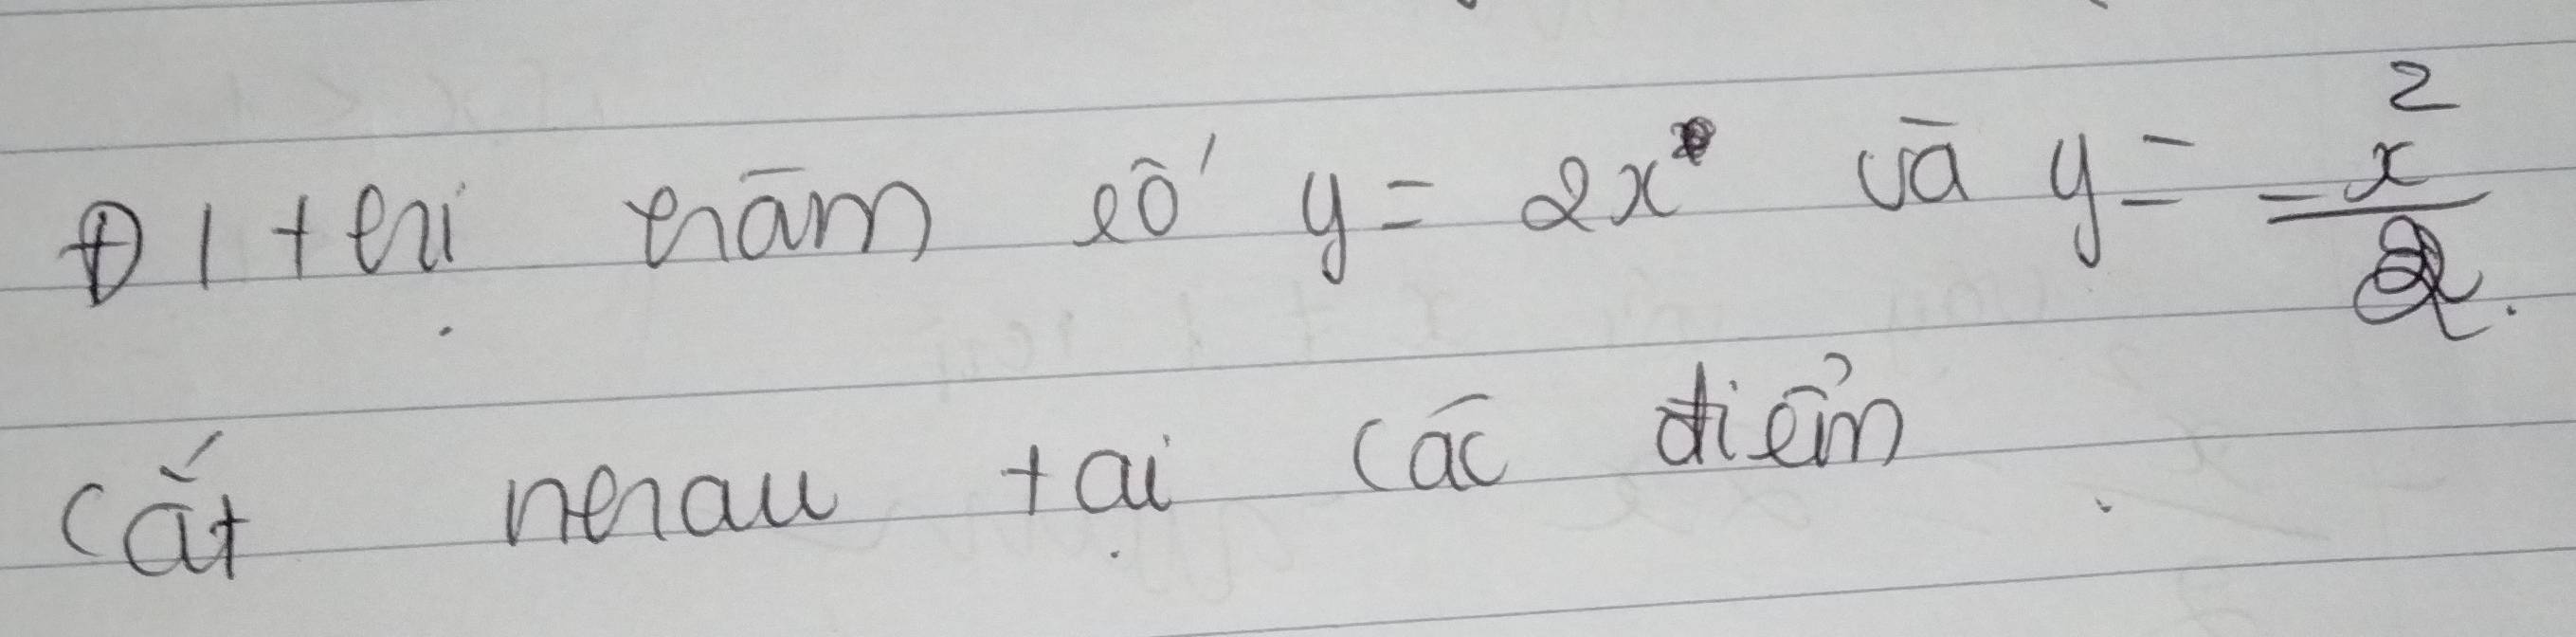 Đ1 thị hàm số y = 2x và y = -x²/2.
cắt nhau tại các điểm